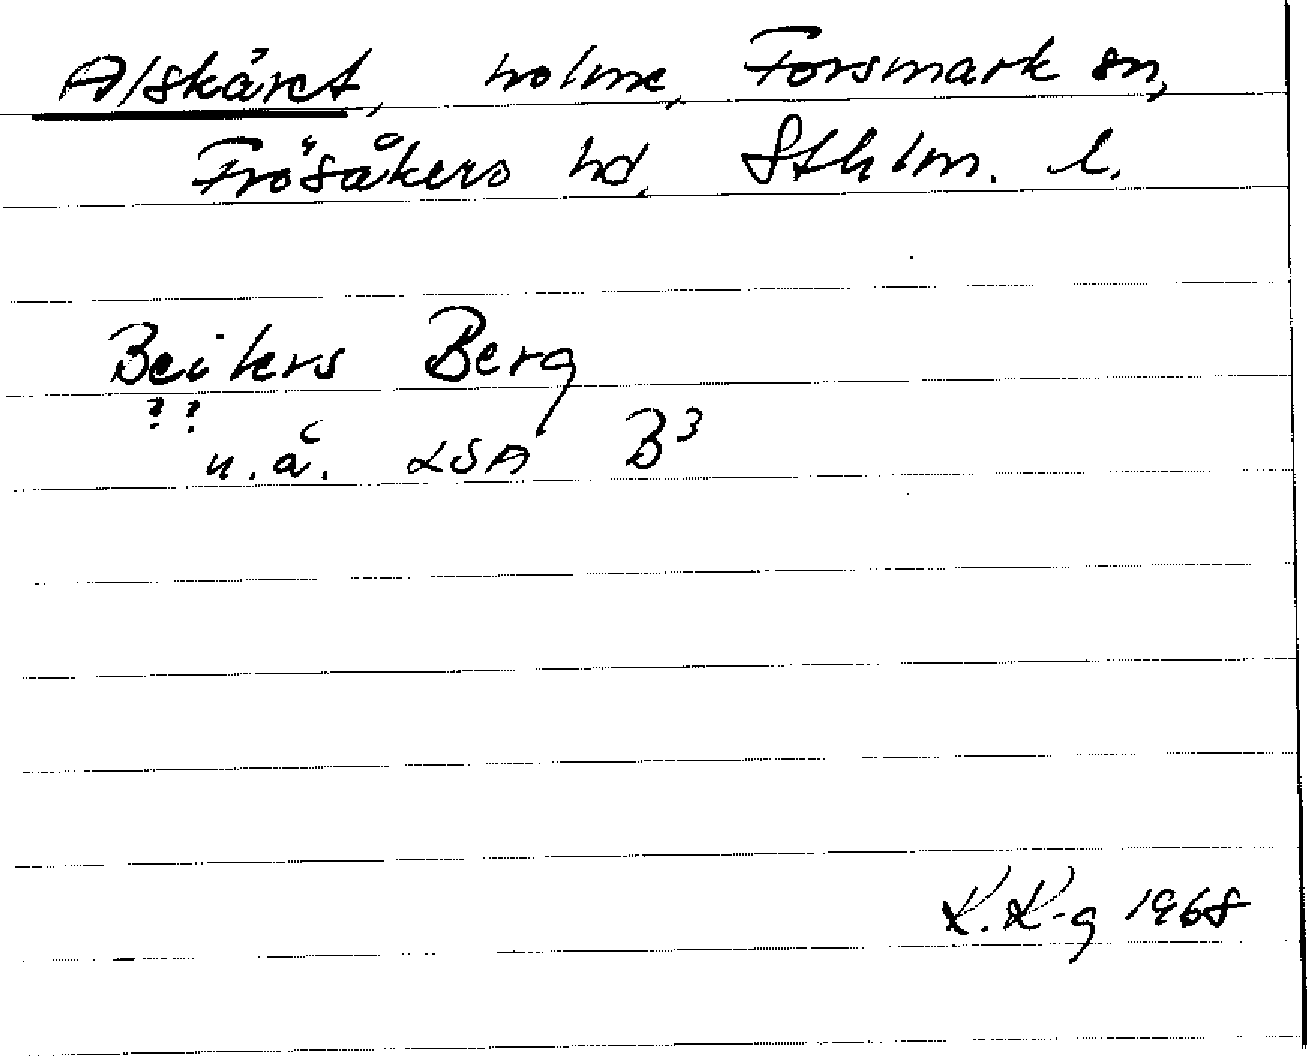 Alskäret, holme, Forsmark sn,
Frösåkers hd. Sthlm. l.
Beikers Berg
? ?
u. å. LSA B³
K. K-g 1968